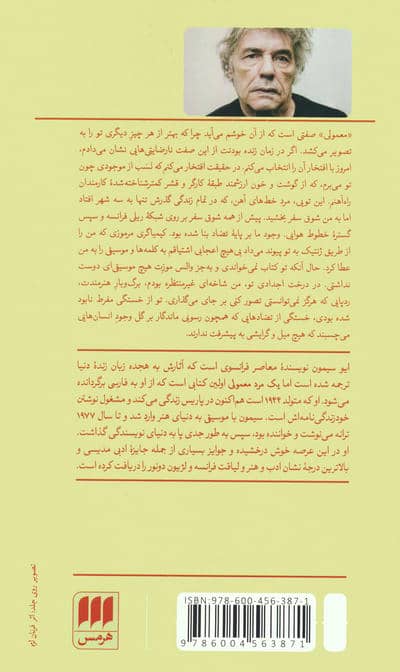 «معمولی» صفتی است که از آن خوشم می‌آید چرا که بهتر از هر چیز دیگری تو را به
تصویر می‌کشد. اگر در زمان زنده بودنت از این صفت نارضایتی‌هایی نشان می‌دادم،
امروز با افتخار آن را انتخاب می‌کنم. در حقیقت افتخار می‌کنم که نسَب از موجودی چون
تو می‌برم، که از گوشت و خون ارزشمند طبقهٔ کارگر و قشر کمترشناخته‌شدهٔ کارمندان
راه‌آهنم. این تویی، مرد خط‌های آهن، که در تمام زندگی گذرش تنها به سه شهر افتاد
اما به من شوق سفر بخشید. پیش از همه شوق سفر بر روی شبکهٔ ریلی فرانسه و سپس
گسترهٔ خطوط هوایی. وجود ما بر پایهٔ تضاد بنا شده بود. کیمیاگری مرموزی که من را
از طریق ژنتیک به تو پیوند می‌داد بی‌هیچ اعجابی اشتیاقم به کلمه‌ها و موسیقی را به من
عطا کرد. حال آنکه تو کتاب نمی‌خواندی و به‌جز والس موزِت هیچ موسیقی‌ای دوست
نداشتی. در درخت اجدادی تو، من شاخه‌ای غیرمنتظره بودم، برگ‌وبارِ هنرمندت،
ردپایی که هرگز نمی‌توانستی تصور کنی بر جای می‌گذاری. تو از خستگی مفرط نابود
شده بودی، خستگی از تضادهایی که همچون رسوبی ماندگار بر گل وجود انسان‌هایی
می‌چسبند که هیچ میل و گرایشی به پیشرفت ندارند.
ایو سیمون نویسندهٔ معاصر فرانسوی است که آثارش به هجده زبان زندهٔ دنیا
ترجمه شده است اما یک مرد معمولی اولین کتابی است که از او به فارسی برگردانده
می‌شود. او که متولد ۱۹۴۴ است هم‌اکنون در پاریس زندگی می‌کند و مشغول نوشتن
خودزندگی‌نامه‌اش است. سیمون با موسیقی به دنیای هنر وارد شد و تا سال ۱۹۷۷
ترانه می‌نوشت و خواننده بود، سپس به طور جدی پا به دنیای نویسندگی گذاشت.
او در این عرصه خوش درخشیده و جوایز بسیاری از جمله جایزهٔ ادبی مدیسی و
بالاترین درجهٔ نشان ادب و هنر و لیاقت فرانسه و لژیون دونور را دریافت کرده است.
ISBN: 978-600-456-387-1
9 786004 563871
هرمس
تصویر روی جلد: اثر